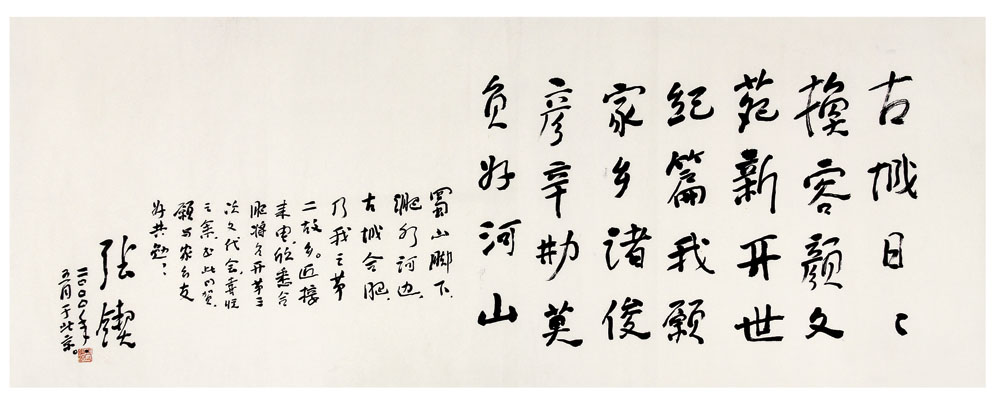 古城日々
换容颜文
苑新开世
纪篇我愿
家乡诸俊
彦辛勤莫
负好河山
蜀山脚下,
淝水河边,
古城合肥,
乃我之第
二故乡。近接
来电,欣悉合
肥将召开第三
次文代会,喜悦
之余,书此以贺,
愿与家乡友
好共勉!
张锲
二〇〇〇年
五月于北京。